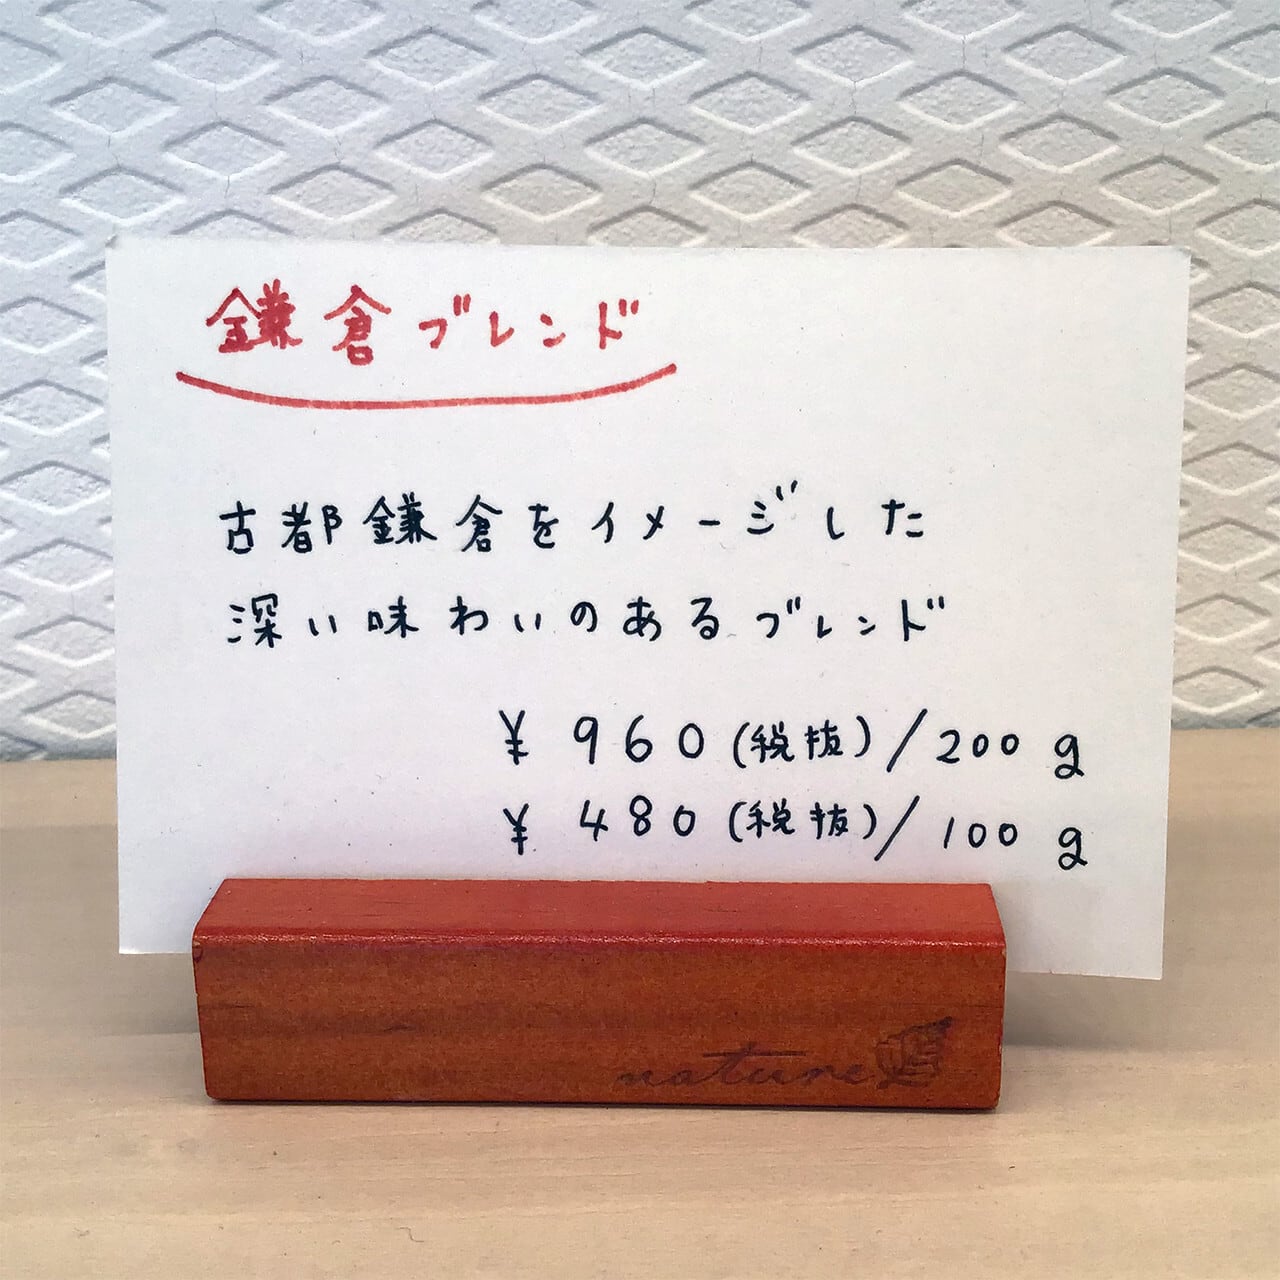 鎌倉ブレンド
古都鎌倉をイメージした
深い味わいのあるブレンド
¥960(税抜)/200g
¥480(税抜)/100g
nature